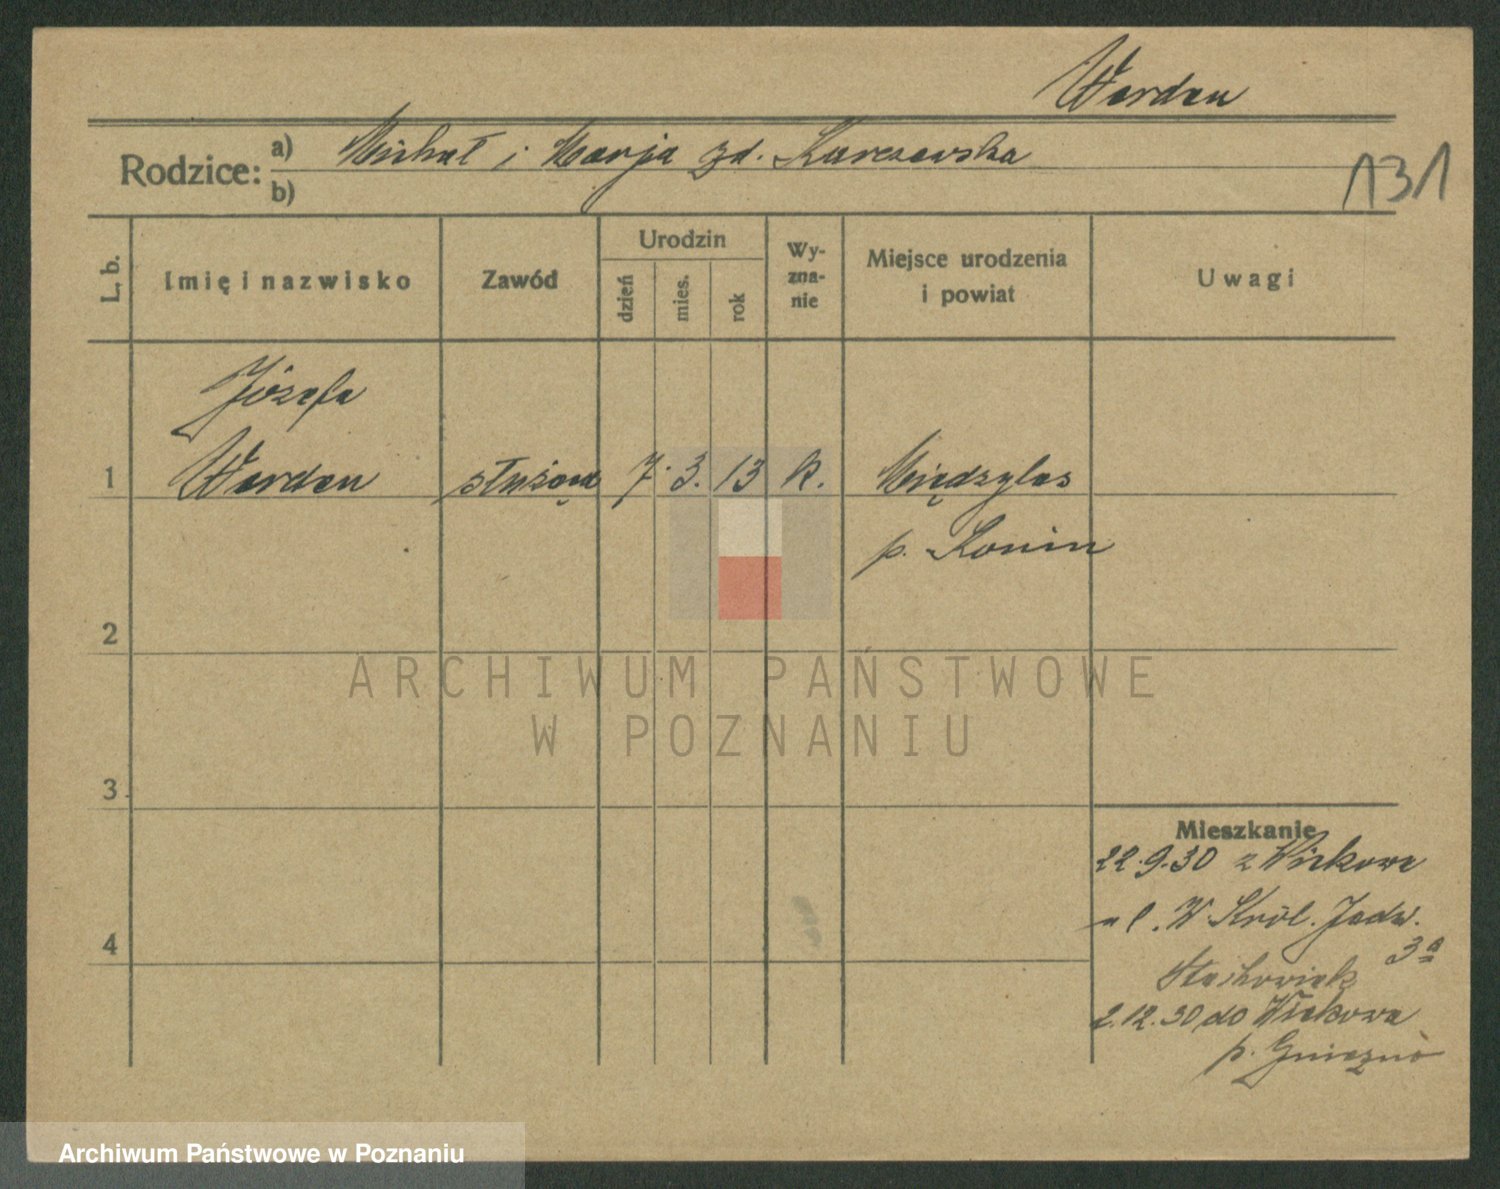 Werdan
Rodzice: a) Michał i Marja zd. Karczewska
b)
131
L. b.
Imię i nazwisko
Zawód
Urodzin
dzień
mies.
rok
Wy-
zna-
nie
Miejsce urodzenia
i powiat
Uwagi
Józefa
1 Werdan służąca 7. 3. 13 k. Międzylas
p. Konin
2
3
4
Mieszkanie
22.9.30 z Wiekowa
ul. W. Król. Jadw.
3a
Stachowiak
2.12.30 do Wiekowa
p. Gniezno
ARCHIWUM PAŃSTWOWE
W POZNANIU
Archiwum Państwowe w Poznaniu